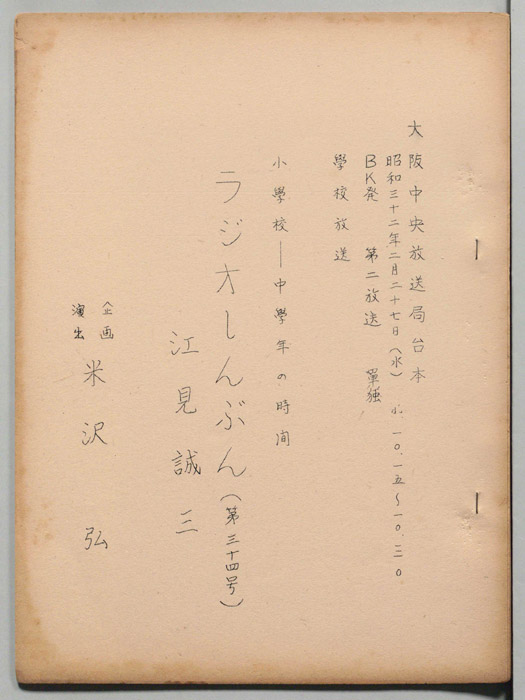 大阪中央放送局台本
昭和三十二年二月二十七日（水） 一〇．一五～一〇．三〇
BK発 第二放送 單獨
學校放送
小學校―中學年の時间
ラジオしんぶん（第三十四号）
江見誠三
企画
演出
米沢 弘